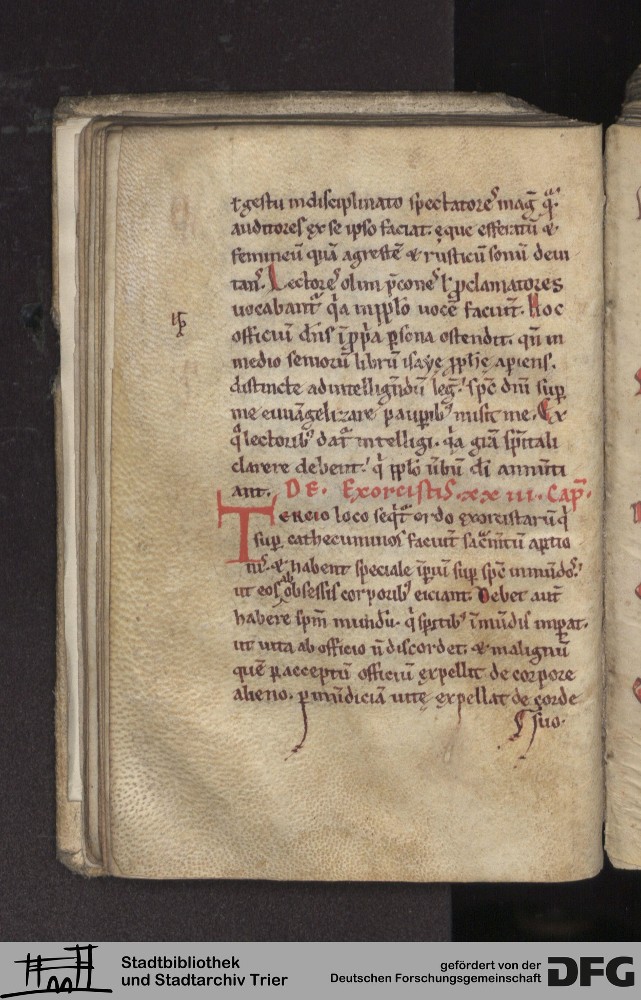 ł gestu indisciplinato spectatores magˢ quā
auditores ex se ipso faciat. eque efferatū &
femineū quā agrestē & rusticū sonū deui
tans. Lectores olim p̄cones ł p̄clamatores
uocabant᷒ q̄a in pp̄lo uocē faciunt. Hoc
officiū dn̄s ī pp̄a p̄sona ostendit. qn̄ in
medio seniorū librū isaye pphe apiens.
distincte ad intelligendū leg̅. sp̄c dn̄i sup
me euuāgelizare paupib᷒ misit me. Ex
q̄ lectorib᷒ dat᷒ intelligi. q̄a grā sp̄itali
clarere debent. q̄ pp̄lo ūbū dī annunti
ant. DE. Exorcistis. xxiii. Cap̄.
TERCIO loco seqt᷒ ordo exorcistarū q̄
sup cathecuminos faciunt sac̄mtū aptio
nis. & habent speciale īpiū sup sp̄c inmūdos.
ut eos ab obsessis corporib᷒ eiciant. Debet aut̄
habere sp̄m mundū. q̄ sp̄itib᷒ īmūdis impat.
ut uita ab officio ñ discordet. & malignū
quē p acceptū officiū expellit de corpore
alieno. p mūdiciā uite expellat de corde
suo.
Stadtbibliothek
und Stadtarchiv Trier
gefördert von der
Deutschen Forschungsgemeinschaft
DFG